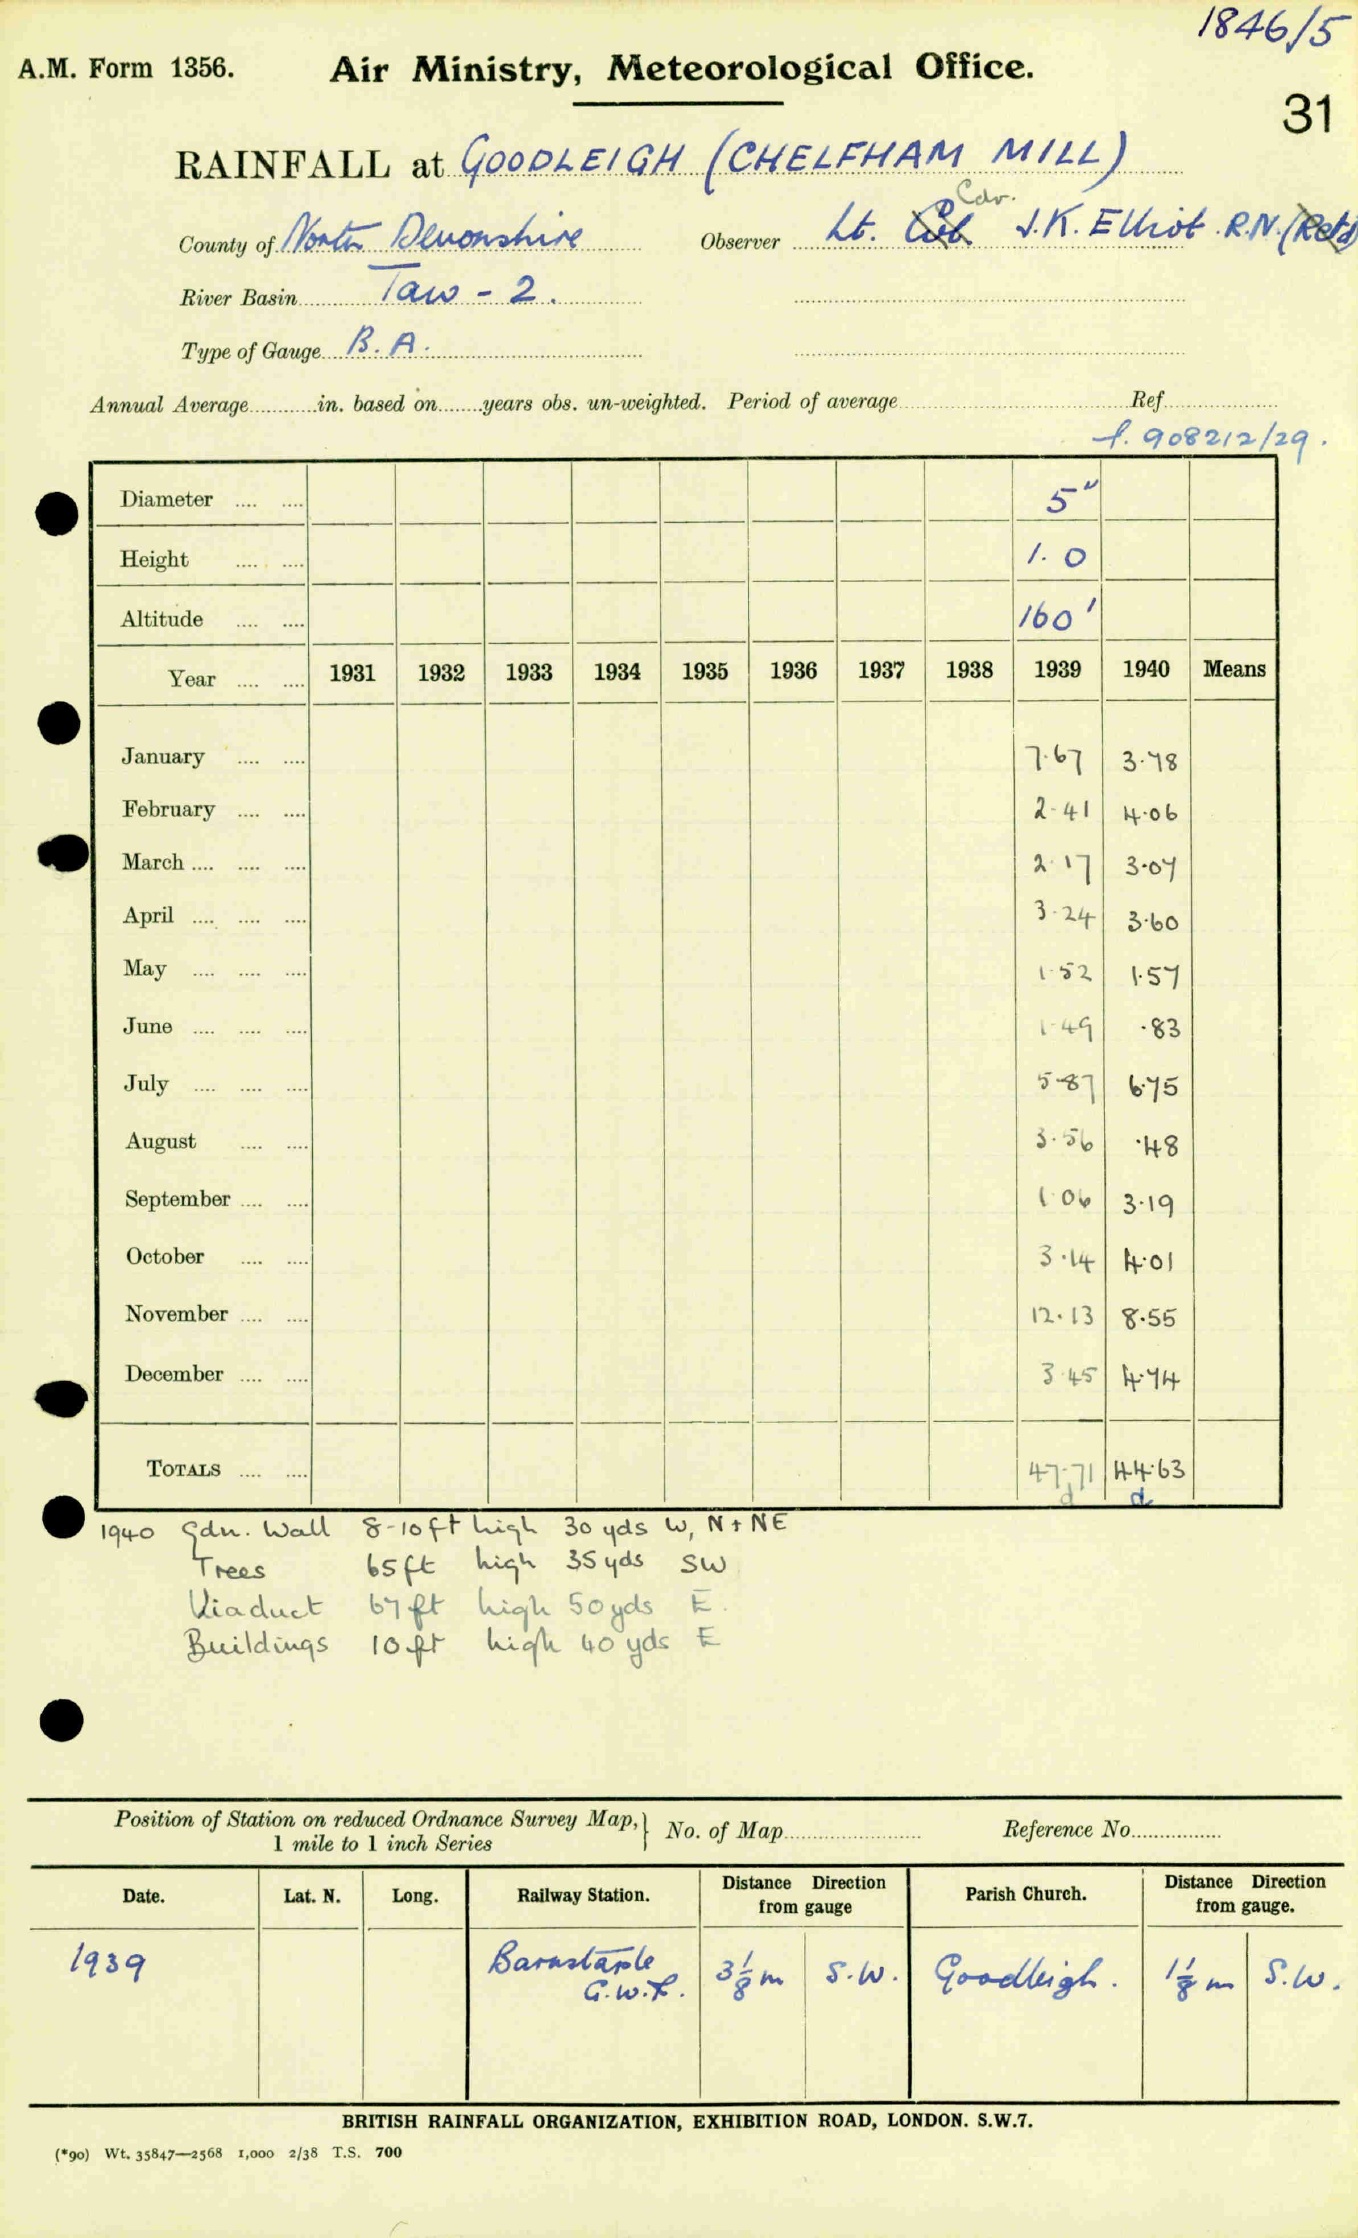 1846/5
A.M. Form 1356. Air Ministry, Meteorological Office.
31
RAINFALL at GOODLEIGH (CHELFHAM MILL)
Cdr.
County of North Devonshire Observer Lt. Col. J.K. Elliot R.N. (Retd)
River Basin Taw - 2.
Type of Gauge B. A.
Annual Average in. based on years obs. un-weighted. Period of average Ref
f. 908212/29.
Diameter .... .... 5"
Height .... .... 1.0
Altitude .... .... 160'
Year .... .... 1931 1932 1933 1934 1935 1936 1937 1938 1939 1940 Means
January .... .... 7.67 3.78
February .... .... 2.41 4.06
March .... .... .... 2.17 3.07
April .... .... .... 3.24 3.60
May .... .... .... 1.52 1.57
June .... .... .... 1.49 .83
July .... .... .... 5.87 6.75
August .... .... 3.56 .48
September .... .... 1.06 3.19
October .... .... 3.14 4.01
November .... .... 12.13 8.55
December .... .... 3.45 4.74
TOTALS .... .... 47.71 44.63
d d
1940 Gdn. Wall 8-10ft high 30 yds W, N + NE
Trees 65ft high 35yds SW
Viaduct 67ft high 50yds E.
Buildings 10ft high 40 yds E
Position of Station on reduced Ordnance Survey Map, } No. of Map Reference No.
1 mile to 1 inch Series
Date. Lat. N. Long. Railway Station. Distance Direction from gauge Parish Church. Distance Direction from gauge.
1939 Barnstaple 3 1/8 m S.W. Goodleigh. 1 1/8 m S.W.
G.W.R.
BRITISH RAINFALL ORGANIZATION, EXHIBITION ROAD, LONDON. S.W.7.
(*90) Wt. 35847—2568 1,000 2/38 T.S. 700